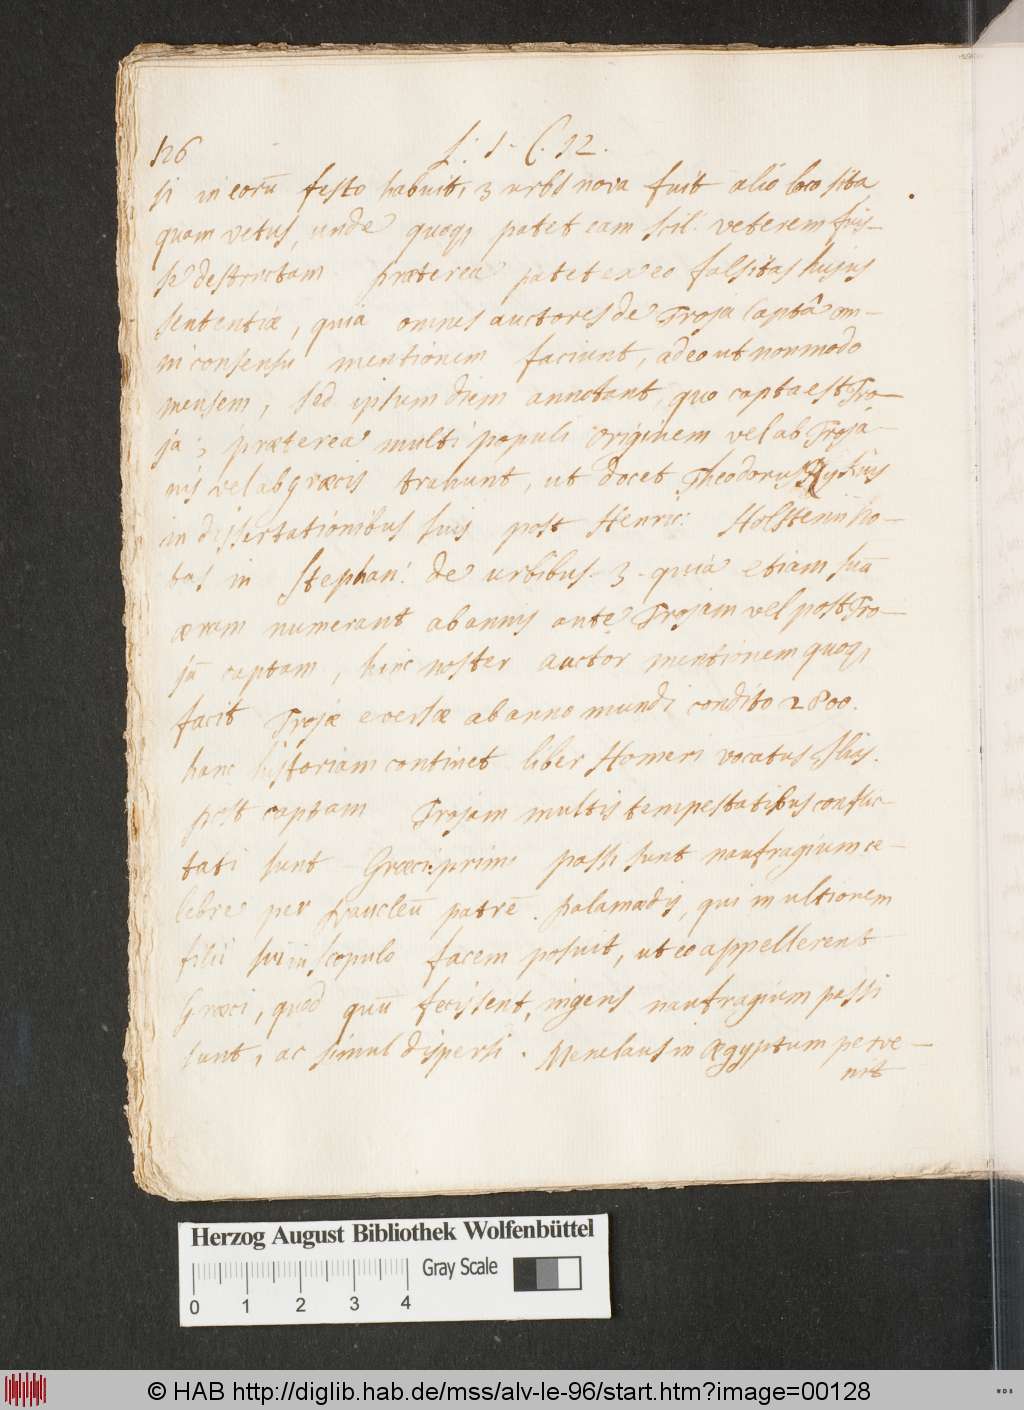 126
L: 1. C. 12.
si in eorū festo habuit, 3 urbs nova fuit alio loco sita
quam vetus, unde quoq, patet eam scil. veterem fuis-
se destructam præterea patet ex eo falsitas hujus
sententiæ, quia omnes auctores de Troja Captâ om-
ni consensu mentionem faciunt, adeo ut non modo
mensem, sed ipsum diem annotant, quo capta est Tro-
ja; præterea multi populi originem vel ab Troja-
nis vel ab græcis trahunt, ut docet Theodorus Rykius
in dissertationibus suis post Henric: Holstenii no-
tas in Stephan: de urbibus. 3. quia etiam suā
æram numerant ab annis ante Trojam vel post Tro-
jā captam, hinc noster auctor mentionem quoq,
facit Trojæ eversæ ab anno mundi condito 2800.
hanc historiam continet liber Homeri vocatus Ilias.
post captam Trojam multis tempestatibus conflic-
tati sunt Græci: primi passi sunt naufragium ce-
lebre per Naucleū patrē. palamedis, qui in ultionem
filii sui in scopulo facem posuit, ut eo appellerent
Græci, quod quū fecissent, ingens naufragium passi
sunt, ac simul dispersi. Menelaus in Ægyptum perve-
nit
Herzog August Bibliothek Wolfenbüttel
Gray Scale
0 1 2 3 4
© HAB http://diglib.hab.de/mss/alv-le-96/start.htm?image=00128